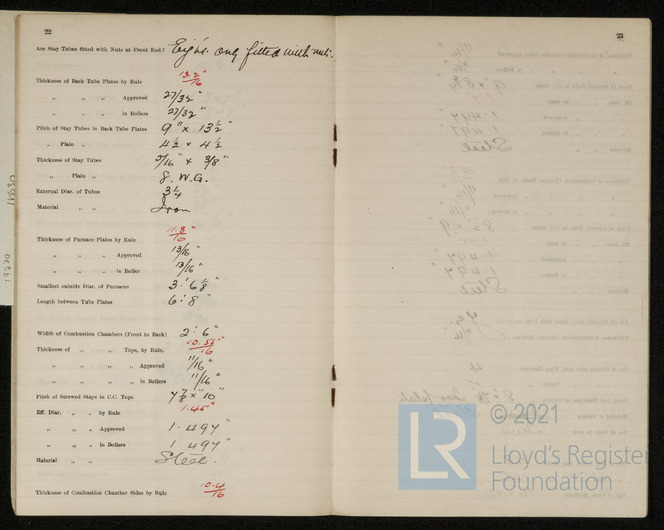 22
Are Stay Tubes fitted with Nuts at Front End? Eight only fitted with nuts.
Thickness of Back Tube Plates by Rule 13.2/16"
" " " Approved 27/32"
" " " in Boilers 27/32"
Pitch of Stay Tubes in Back Tube Plates 9" x 13 1/2"
" Plain " 4 1/2 x 4 1/2
Thickness of Stay Tubes 5/16" & 3/8"
" Plain " 8. W.G.
External Diar. of Tubes 3 1/4
Material " " Iron
Thickness of Furnace Plates by Rule 11.8/16"
" " " Approved 13/16"
" " " in Boiler 13/16"
Smallest outside Diar. of Furnaces 3' 6 1/8"
Length between Tube Plates 6' 8"
Width of Combustion Chambers (Front to Back) 2' 6"
Thickness of " " Tops, by Rule, 10.55/16"
" " " Approved 11/16"
" " " in Boilers 11/16"
Pitch of Screwed Stays in C.C. Tops 7 7/8 x "10"
Eff. Diar. " " by Rule 1.45"
" " " Approved 1.497"
" " " in Boilers 1.497"
Material " " Steel.
Thickness of Combustion Chamber Sides by Rule 10.4/16"
23
19830
19830
LR
© 2021
Lloyd's Register
Foundation